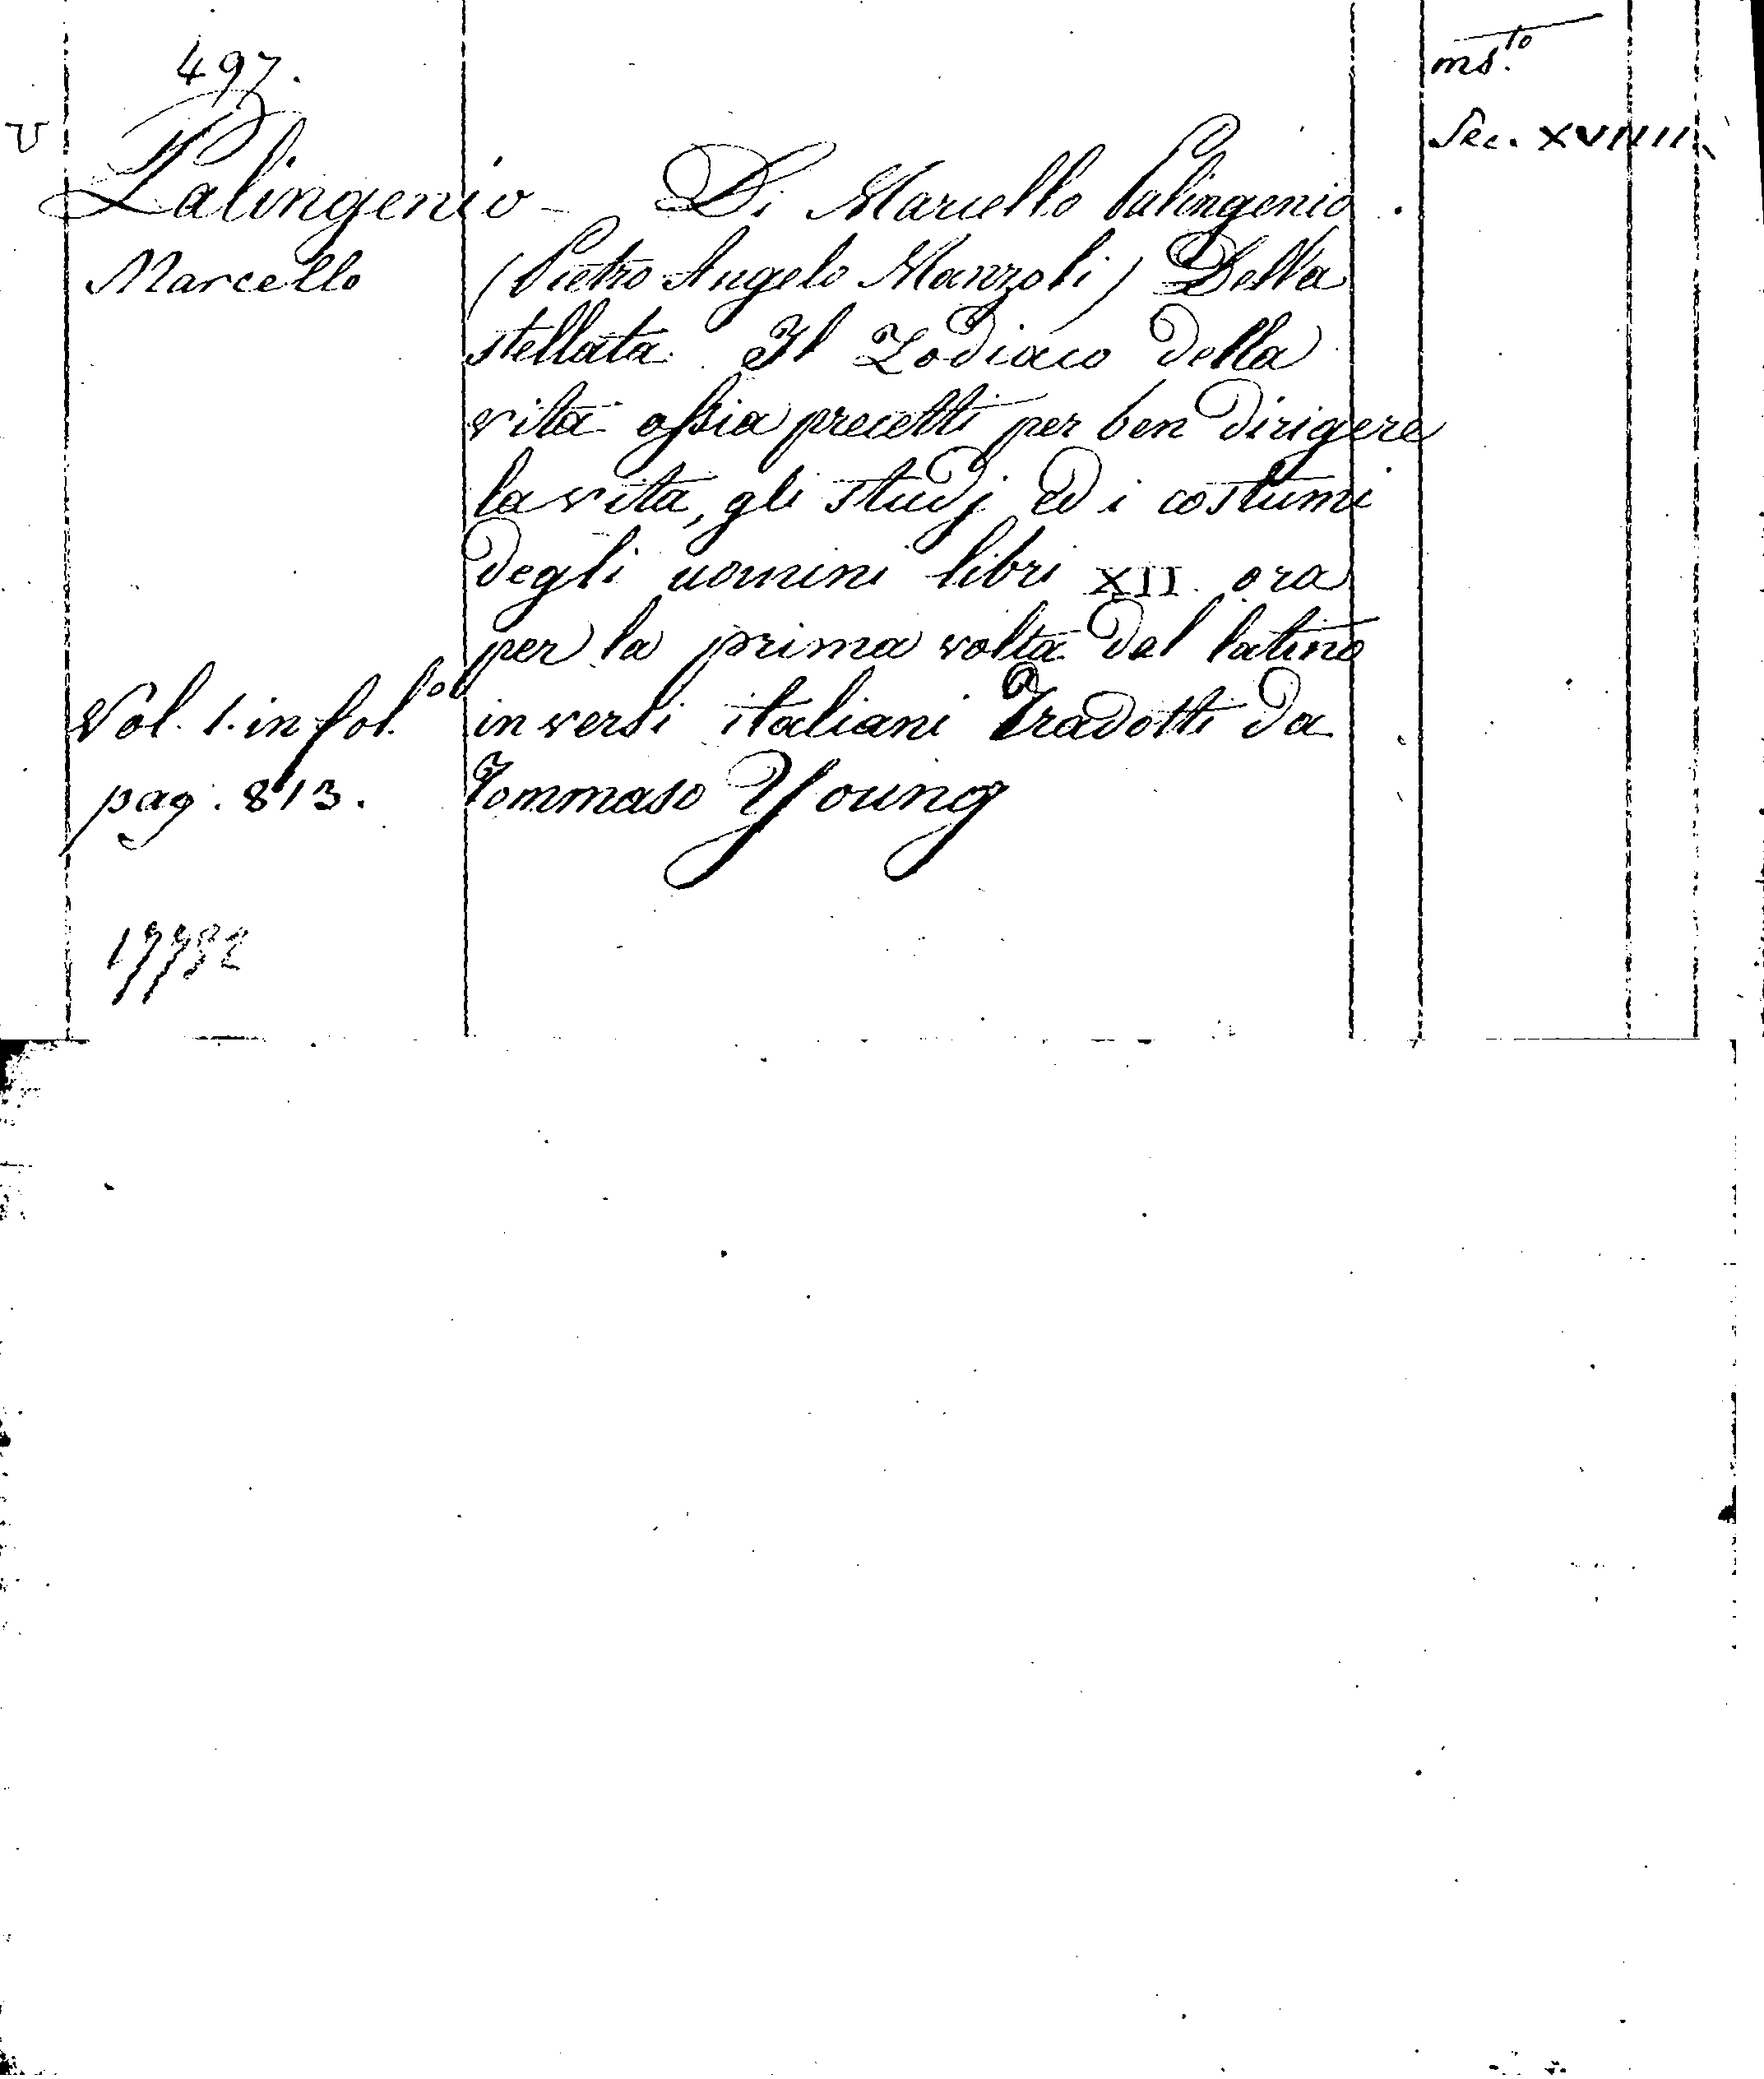 497.
ms.to
Sec. XVIIII
V
Palingenio - Di Marcello Palingenio
Marcello (Pietro Angelo Manzoli) Della
stellata. Il Zodiaco della
vita ossia precetti per ben dirigere
la vita, gli studj ed i costumi
degli uomini libri XII. ora
per la prima volta dal latino
Vol. 1. in fol.o in versi italiani Tradotti da
pag. 813. Tommaso Young